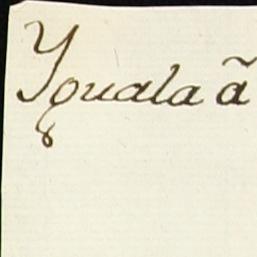 Yguala ã